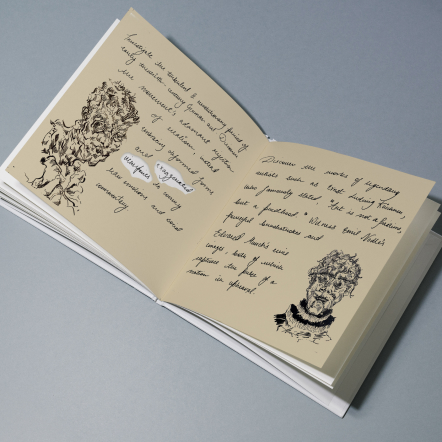 Investigate the turbulent & revolutionary fervor of
early twentieth-century German and Danish
the movement's adamant rejection
of realism instead
embracing deformed forms
and exaggerated
viewpoints to convey
raw emotions and social
commentary
Discover the works of legendary
artists such as Ernst Ludwig Kirchner,
who famously stated, "Art is not a fashion,
but a priesthood." Witness Emil Nolde's
powerful brushstrokes and
Edvard Munch's eerie
images, both of which
captures the pulse of a
nation in upheaval.